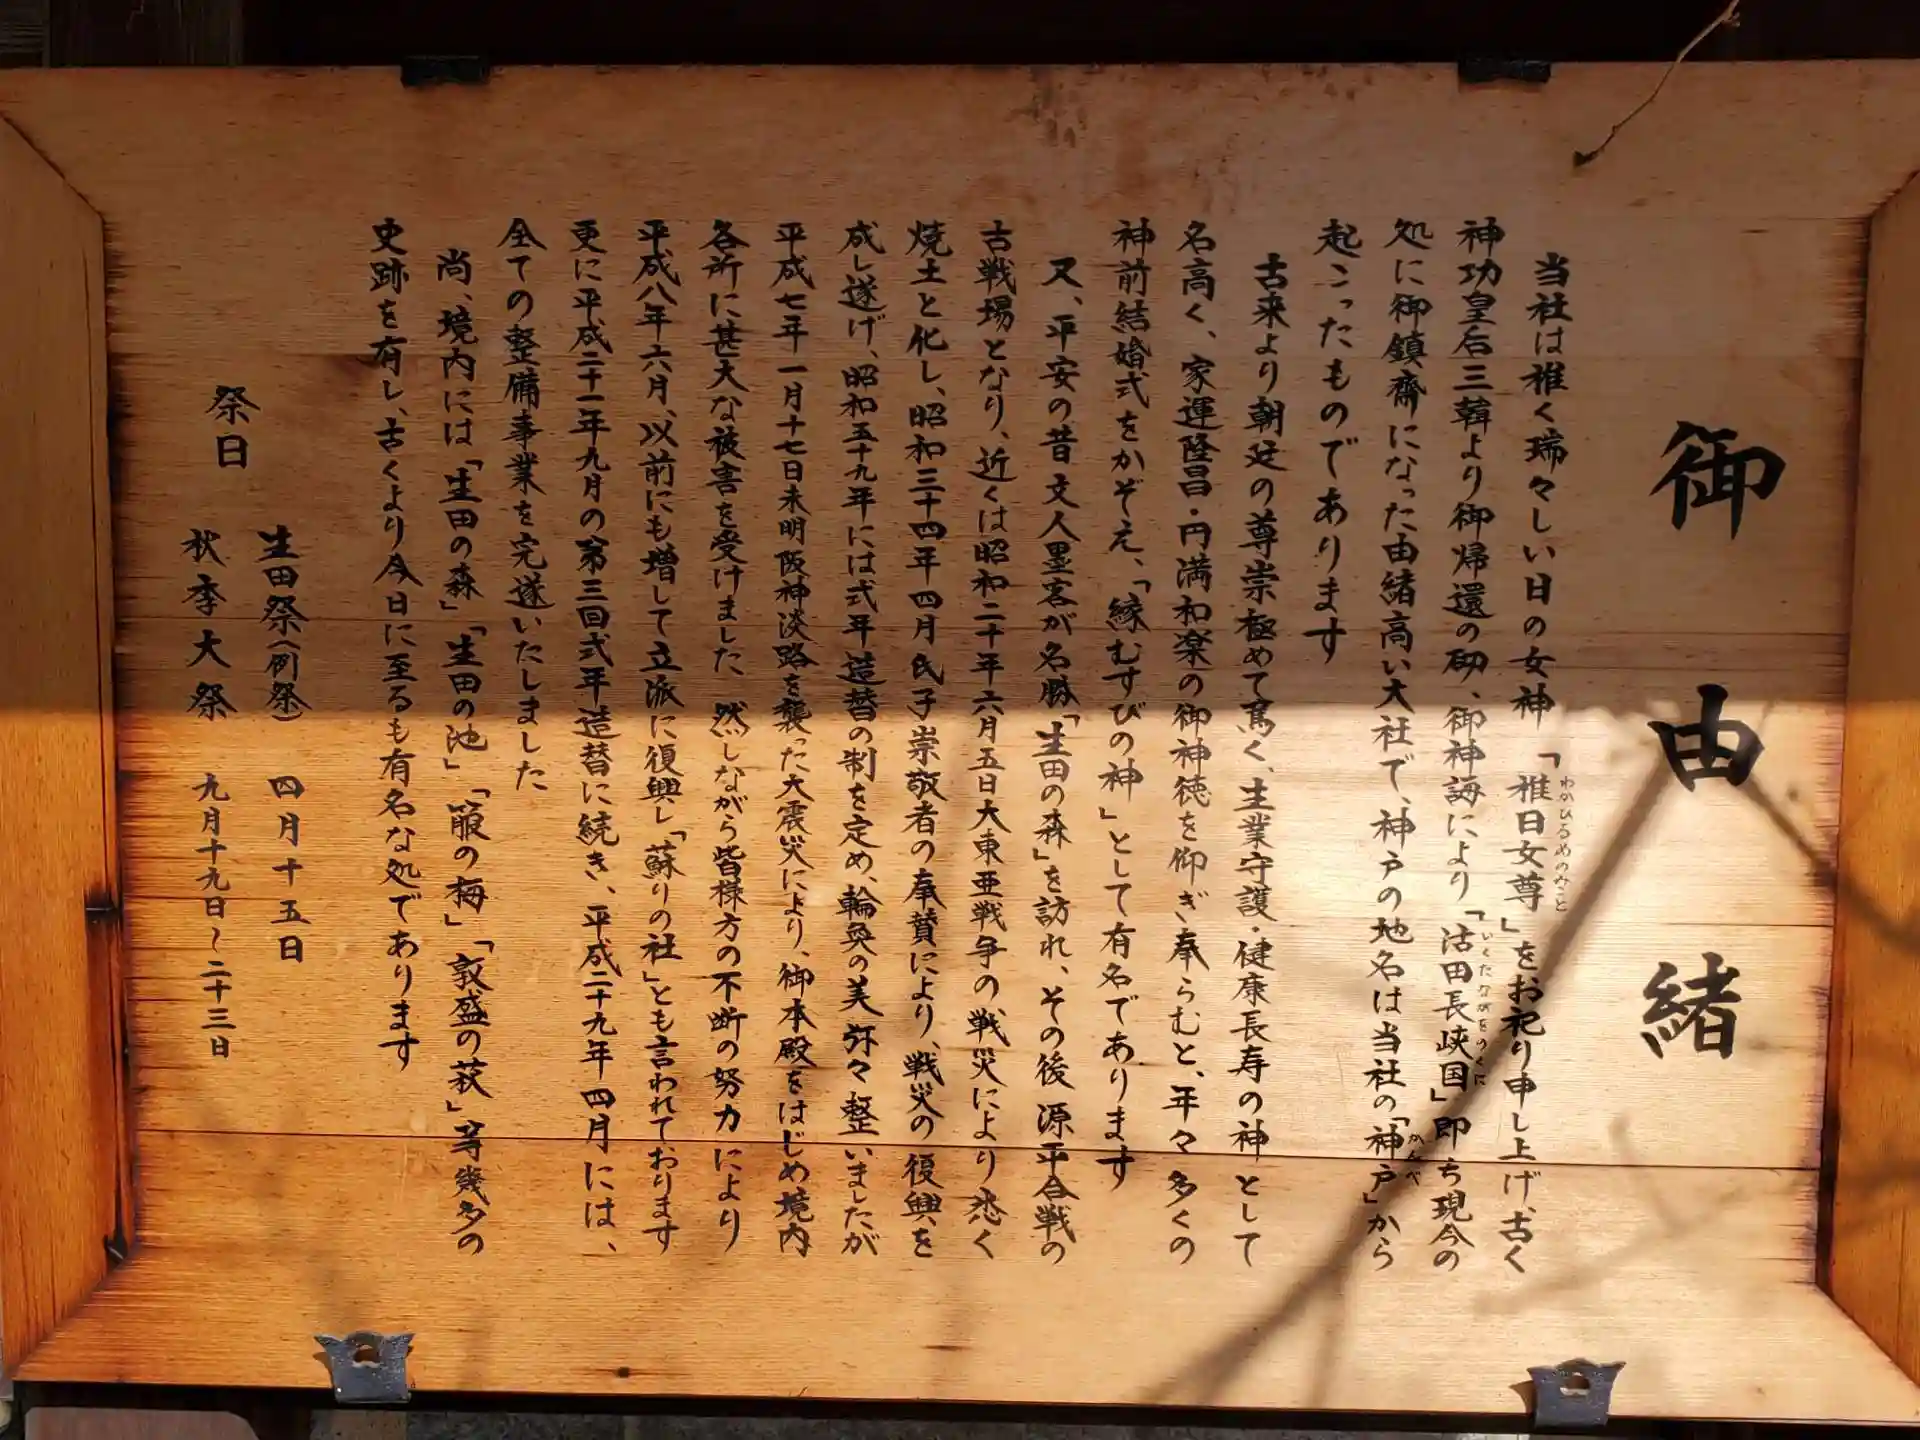 御由緒
当社は稚く瑞々しい日の女神「稚日女尊」をお祀り申し上げ、古く
わかひるめのみこと
神功皇后三韓より御帰還の砌、御神誨により「活田長峡国」即ち現今の
いくたながをのくに
処に御鎮斎になった由緒高い大社で、神戸の地名は当社の「神戸」から
かんべ
起こったものであります
古来より朝廷の尊崇極めて篤く、生業守護・健康長寿の神として
名高く、家運隆昌・円満和楽の御神徳を仰ぎ奉らむと、年々多くの
神前結婚式をかぞえ、「縁むすびの神」として有名であります
又、平安の昔文人墨客が名勝「生田の森」を訪れ、その後源平合戦の
古戦場となり、近くは昭和二十年六月五日大東亜戦争の、戦災により悉く
焼土と化し、昭和三十四年四月氏子崇敬者の奉賛により、戦災の復興を
成し遂げ、昭和五十九年には式年造替の制を定め、輪奐の美弥々整いましたが
平成七年一月十七日未明阪神淡路を襲った大震災により、御本殿をはじめ境内
各所に甚大な被害を受けました 然しながら皆様方の不断の努力により
平成八年六月、以前にも増して立派に復興し「蘇りの社」とも言われております
更に平成二十一年九月の第三回式年造替に続き、平成二十九年四月には、
全ての整備事業を完遂いたしました
尚、境内には「生田の森」「生田の池」「箙の梅」「敦盛の萩」等幾多の
史跡を有し、古くより今日に至るも有名な処であります
祭日
生田祭(例祭) 四月十五日
秋季大祭 九月十九日~二十三日